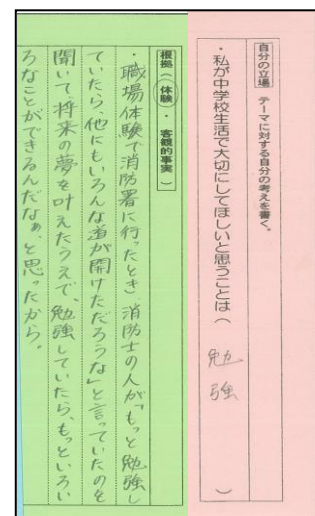 自分の立場　テーマに対する自分の考えを書く。
・私が中学校生活で大切にしてほしいと思うことは（　勉強　）
根拠（体験・客観的事実）
・職場体験で消防署に行ったとき、消防士の人が「もっと勉強し
ていたら、他にもいろんな道が開けただろうな」と言っていたのを
聞いて、将来の夢を叶えたうえで、勉強していたら、もっといろい
ろなことができるんだなぁ、と思ったから。